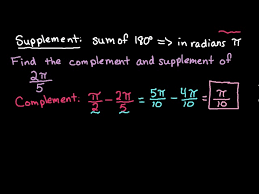 Supplement: sum of 180° => in radians π
Find the complement and supplement of
2π/5
Complement: π/2 - 2π/5 = 5π/10 - 4π/10 = π/10